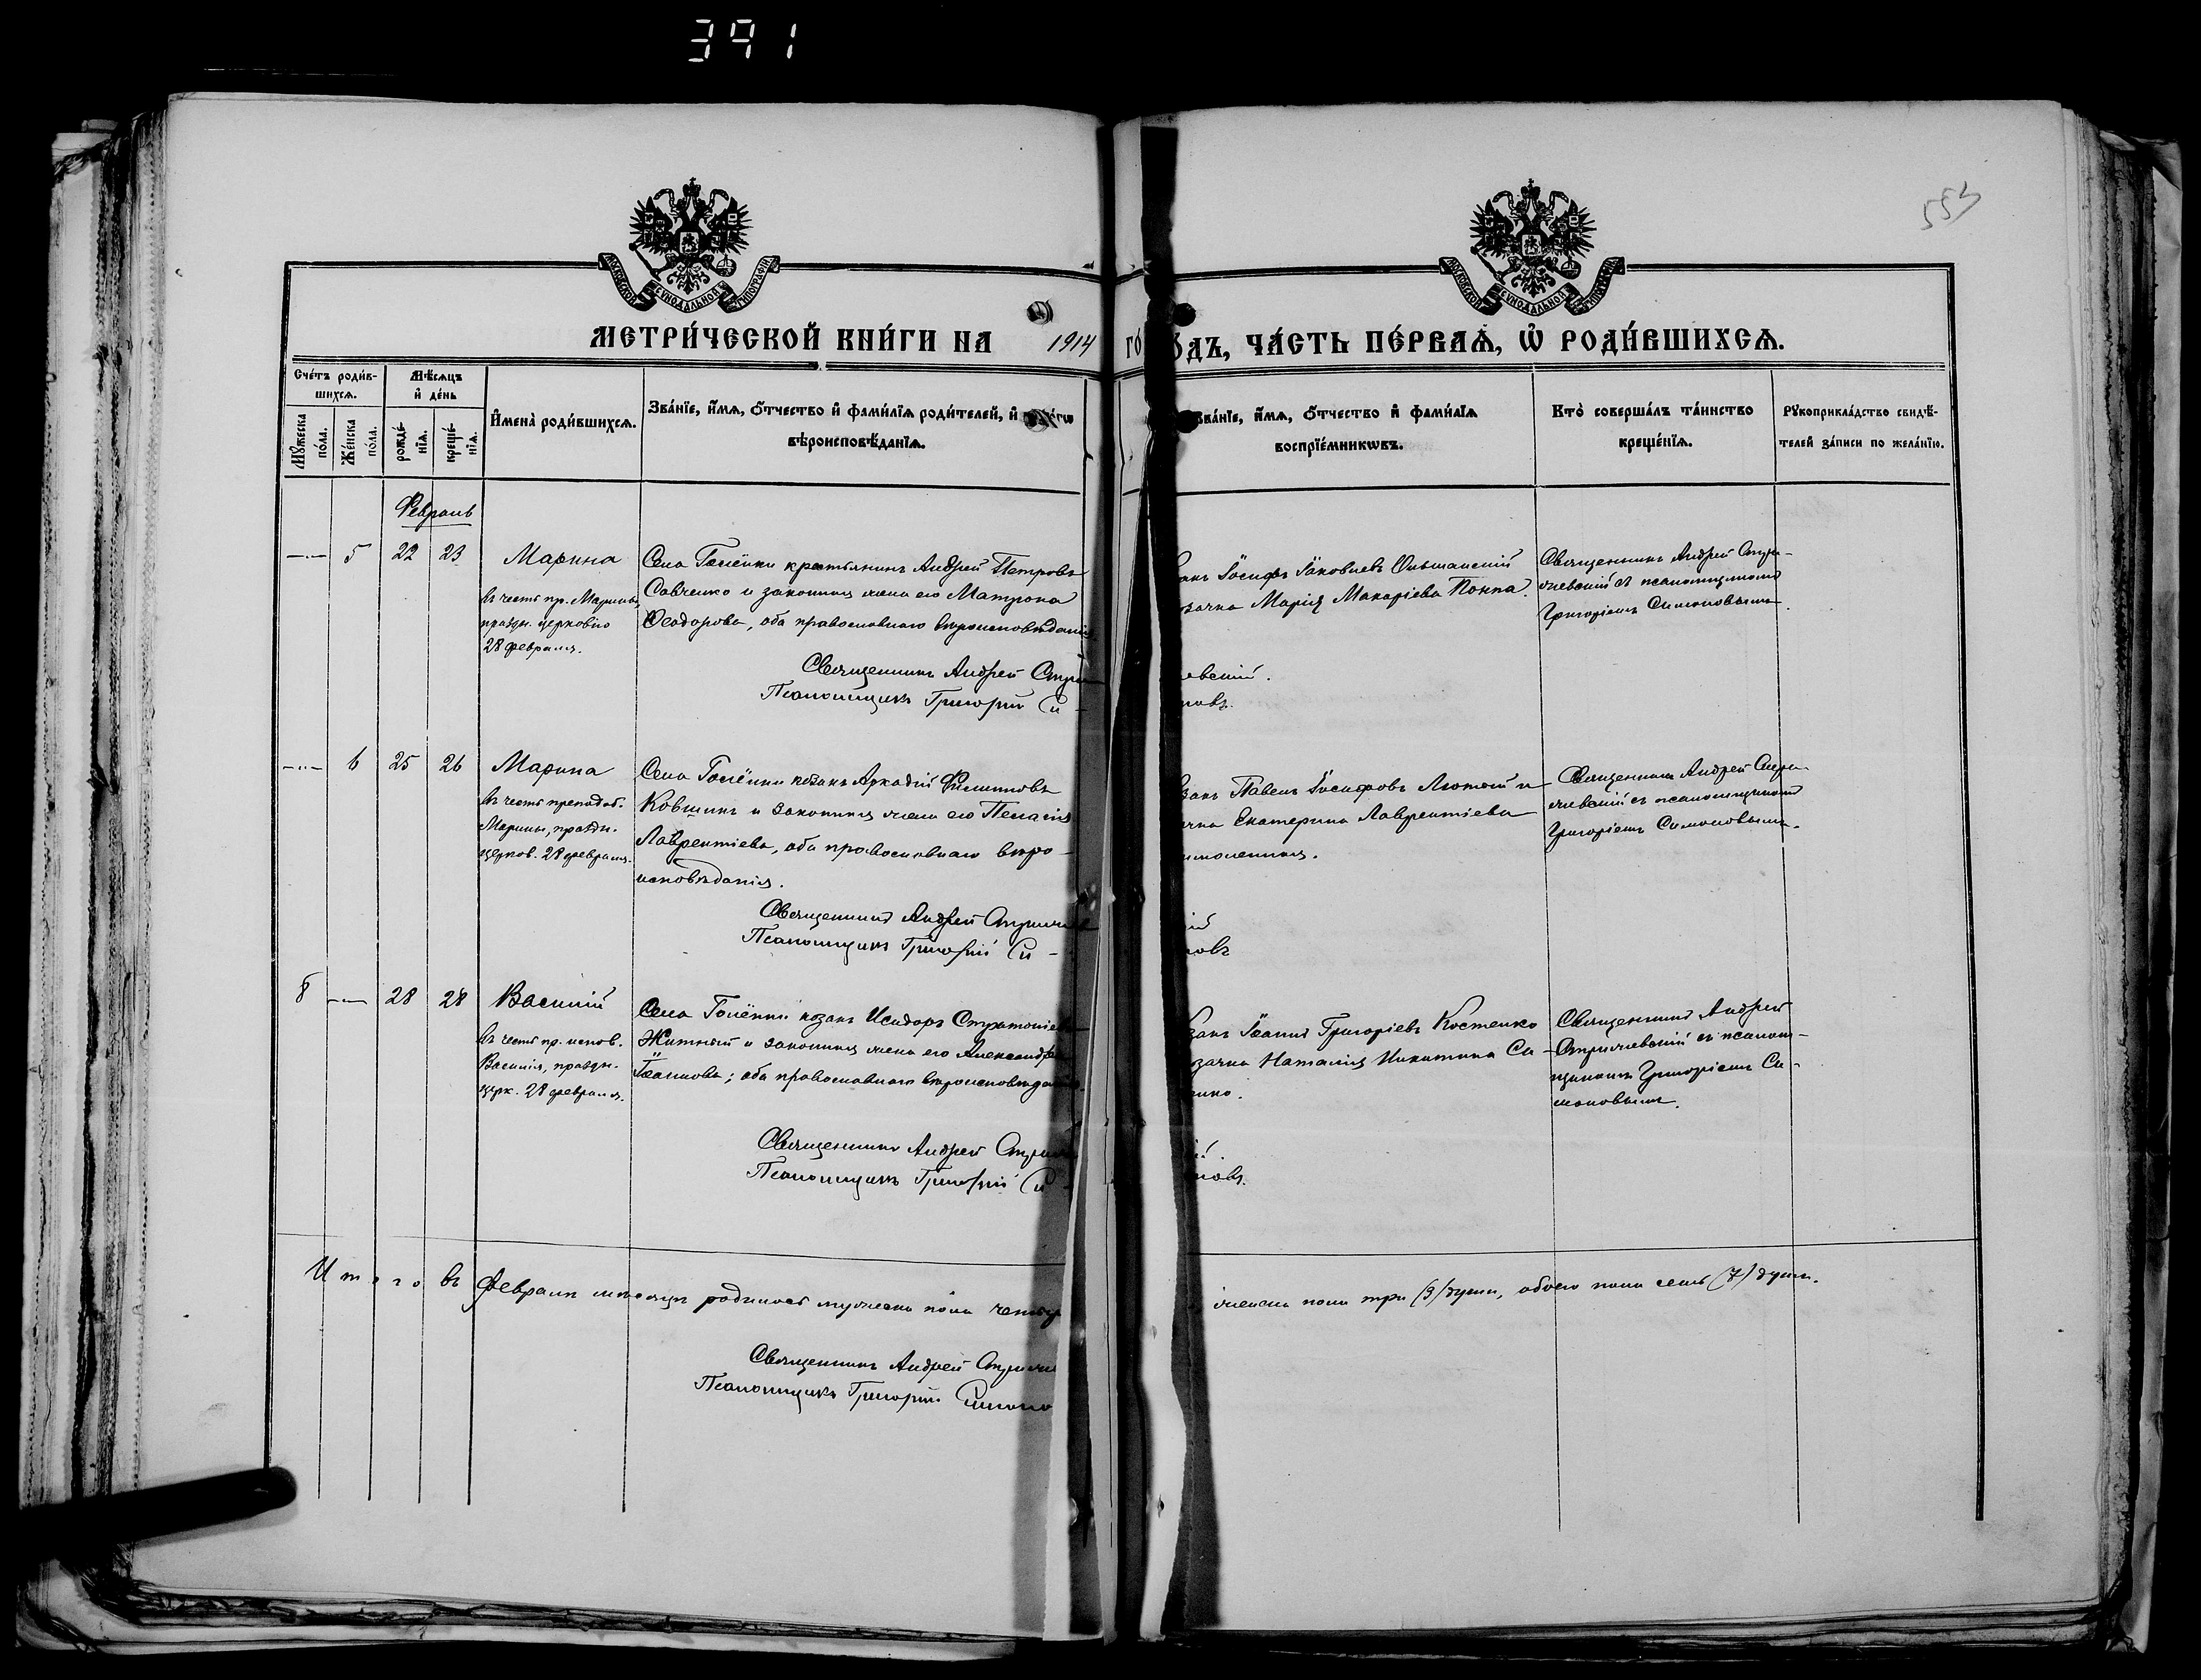 391
553
МОСКОВСКОЙ СѴНОДАЛЬНОЙ ТИПОГРАФІИ
МОСКОВСКОЙ СѴНОДАЛЬНОЙ ТИПОГРАФІИ
МЕТРИ́ЧЕСКОЙ КНИ́ГИ НА 1914 ГО́ДЪ, ЧА́СТЬ ПЕ́РВАѦ, Ѡ РОДИ́ВШИХСѦ.
Сче́тъ роди́в-
шихсѧ.
Мѣ́сѧцъ
и де́нь
Му́жеска
по́ла.
Же́нска
по́ла.
рожде́-
нїѧ.
креще́-
нїѧ.
Имена̀ роди́вшихсѧ.
Зва́нїе, и́мѧ, о́тчество и фами́лїѧ роди́телей, и
вѣроисповѣ́данїѧ.
Зва́нїе, и́мѧ, о́тчество и фами́лїѧ
воспрїе́мникѡвъ.
Кто̀ соверша́лъ та́инство
креще́нїѧ.
Рꙋкоприкла́дство свидѣ́-
телей за́писи по жела́нїю.
Февраль
5 22 23
Марина
въ честь пр. Марины,
праздн. церковію
28 февраля.
Села Голёнки крестьянинъ Андрей Петровъ
Савченко и законная жена его Матрона
Ѳеодорова, оба православнаго вѣроисповѣданія.
Священникъ Андрей Стри
Псаломщикъ Григорій Си-
закъ Іосифъ Іаковлевъ Ольшанскій
зачка Марія Макаріева Поппа.
жевскій.
новъ.
Священникъ Андрей Стри-
жевскій съ псаломщикомъ
Григоріемъ Симоновымъ.
6 25 26
Марина
въ честь преподоб.
Марины, праздн.
церков. 28 февраля.
Села Голёнки козакъ Аркадій Филипповъ
Ковшикъ и законная жена его Пелагія
Лаврентіева, оба православнаго вѣро-
исповѣданія.
Священникъ Андрей Стриже
Псаломщикъ Григорій Си-
закъ Павелъ Іосифовъ Лютый и
чка Екатерина Лаврентіева
моленная.
ій
новъ
Священникъ Андрей Стри-
жевскій съ псаломщикомъ
Григоріемъ Симоновымъ.
8 28 28
Василій
въ честь пр. испов.
Василія, праздн.
церк. 28 февраля.
Села Голёнки козакъ Исидоръ Стратоніев
Житный и законная жена его Александра
Іоаннова; оба православнаго вѣроисповѣдан
Священникъ Андрей Стриж
Псаломщикъ Григорій Си-
закъ Іоаннъ Григоріевъ Костенко
зачка Наталія Никитина Си-
енко.
й.
новъ.
Священникъ Андрей
Стрижевскій съ псалом-
щикомъ Григоріемъ Си-
моновымъ.
Итого въ февралѣ мѣсяцѣ родилось мужеска пола четыр женска пола три (3) души, обоего пола семь (7) душъ.
Священникъ Андрей Стриже
Псаломщикъ Григорій Симоно